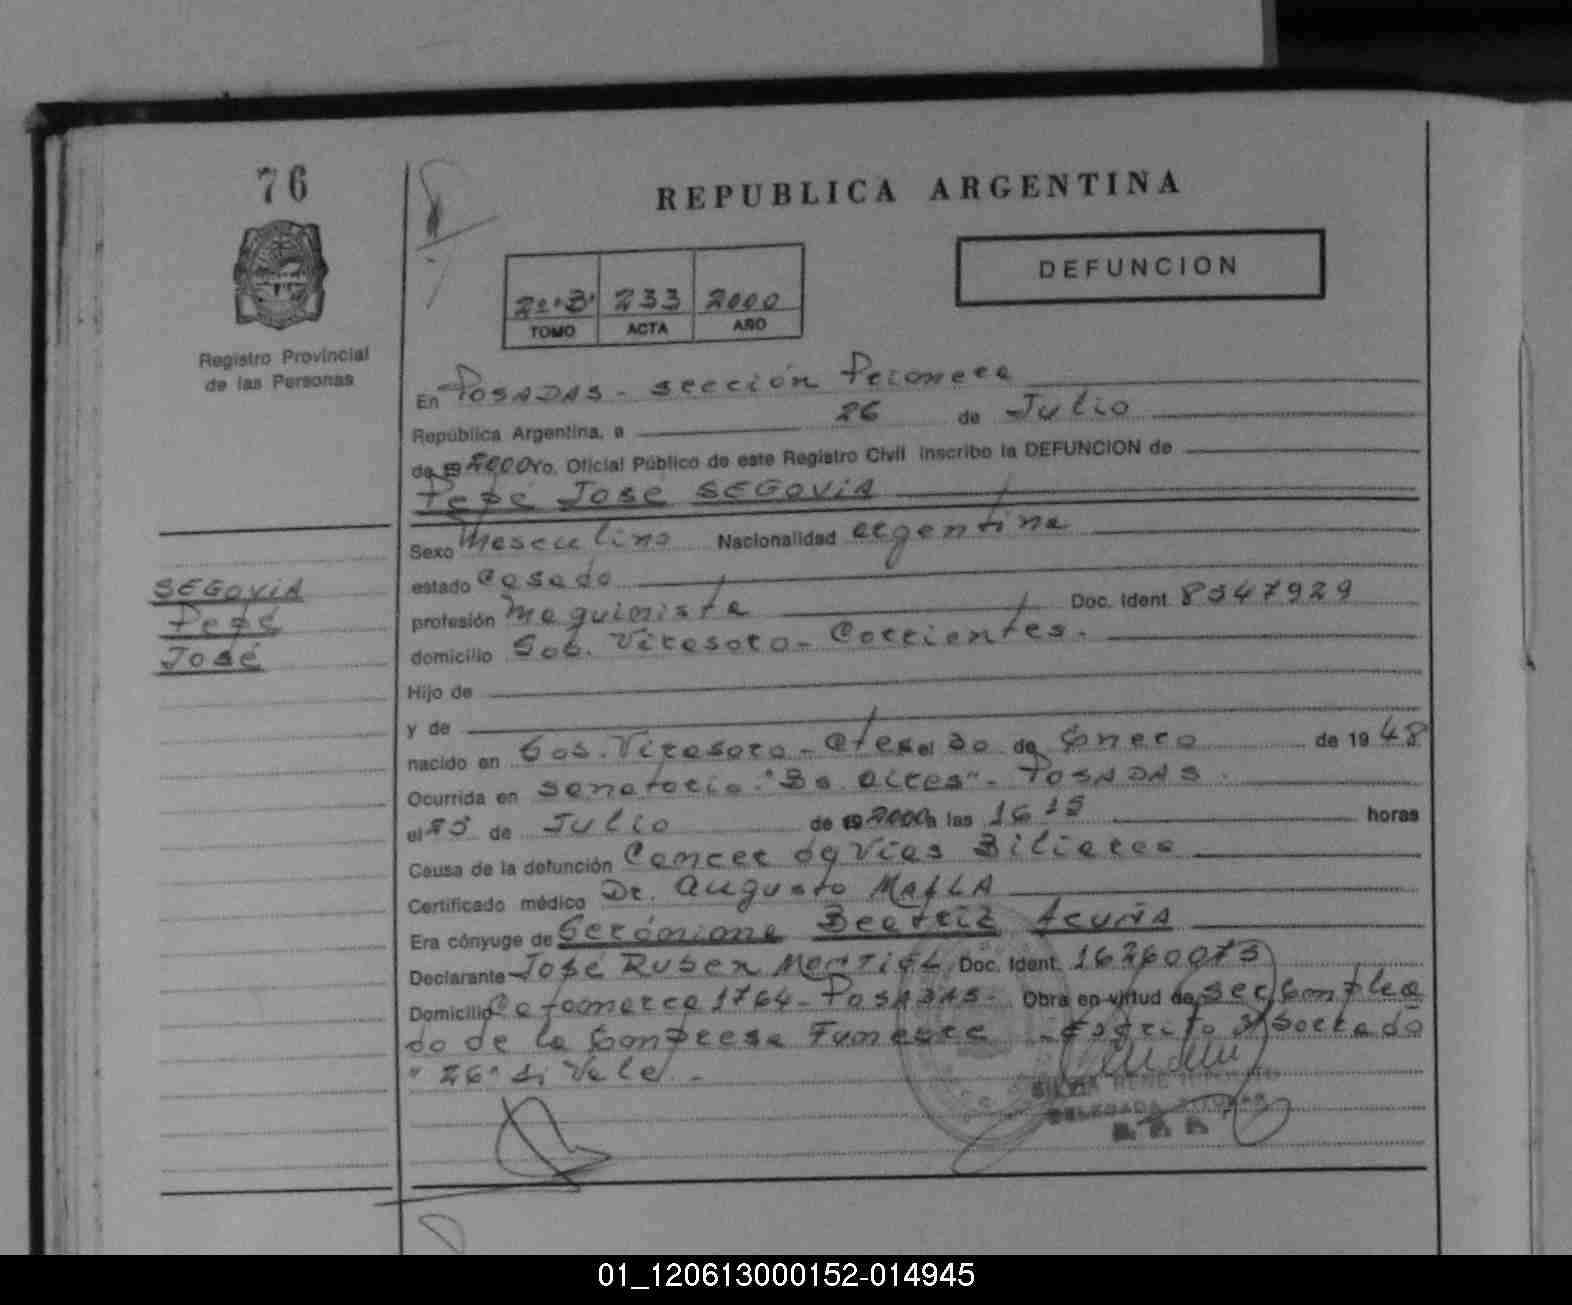 76
REPUBLICA ARGENTINA
DEFUNCION
2º "B" 233 2000
TOMO ACTA AÑO
Registro Provincial
de las Personas
En POSADAS - sección Primera
República Argentina, a 26 de Julio
de 19 2000 Yo, Oficial Público de este Registro Civil inscribo la DEFUNCION de
Pepé José SEGOVIA
Sexo Masculino Nacionalidad argentina
estado Casado
profesión Maquinista Doc. Ident. 8347929
domicilio Gob. Virasoro - Corrientes.
SEGOVIA
Pepé
José
Hijo de
y de
nacido en Gob. Virasoro - Ctes. el 30 de Enero de 19 48
Ocurrida en Sanatorio "Bs. Aires" - POSADAS.
el 25 de Julio de 19 2000 a las 16 15 horas
Causa de la defunción Cancer de Vias Biliares
Certificado médico Dr. Augusto MAFLA
Era cónyuge de Gerónima Beatriz ACUÑA
Declarante José RUBEN MONTIEL Doc. Ident.
Domicilio Catamarca 1764 - POSADAS. Obra en virtud de ser Emplea
do de la Empresa Funebre - Escrito s/borrado
"26" Si Vale. -
01_120613000152-014945